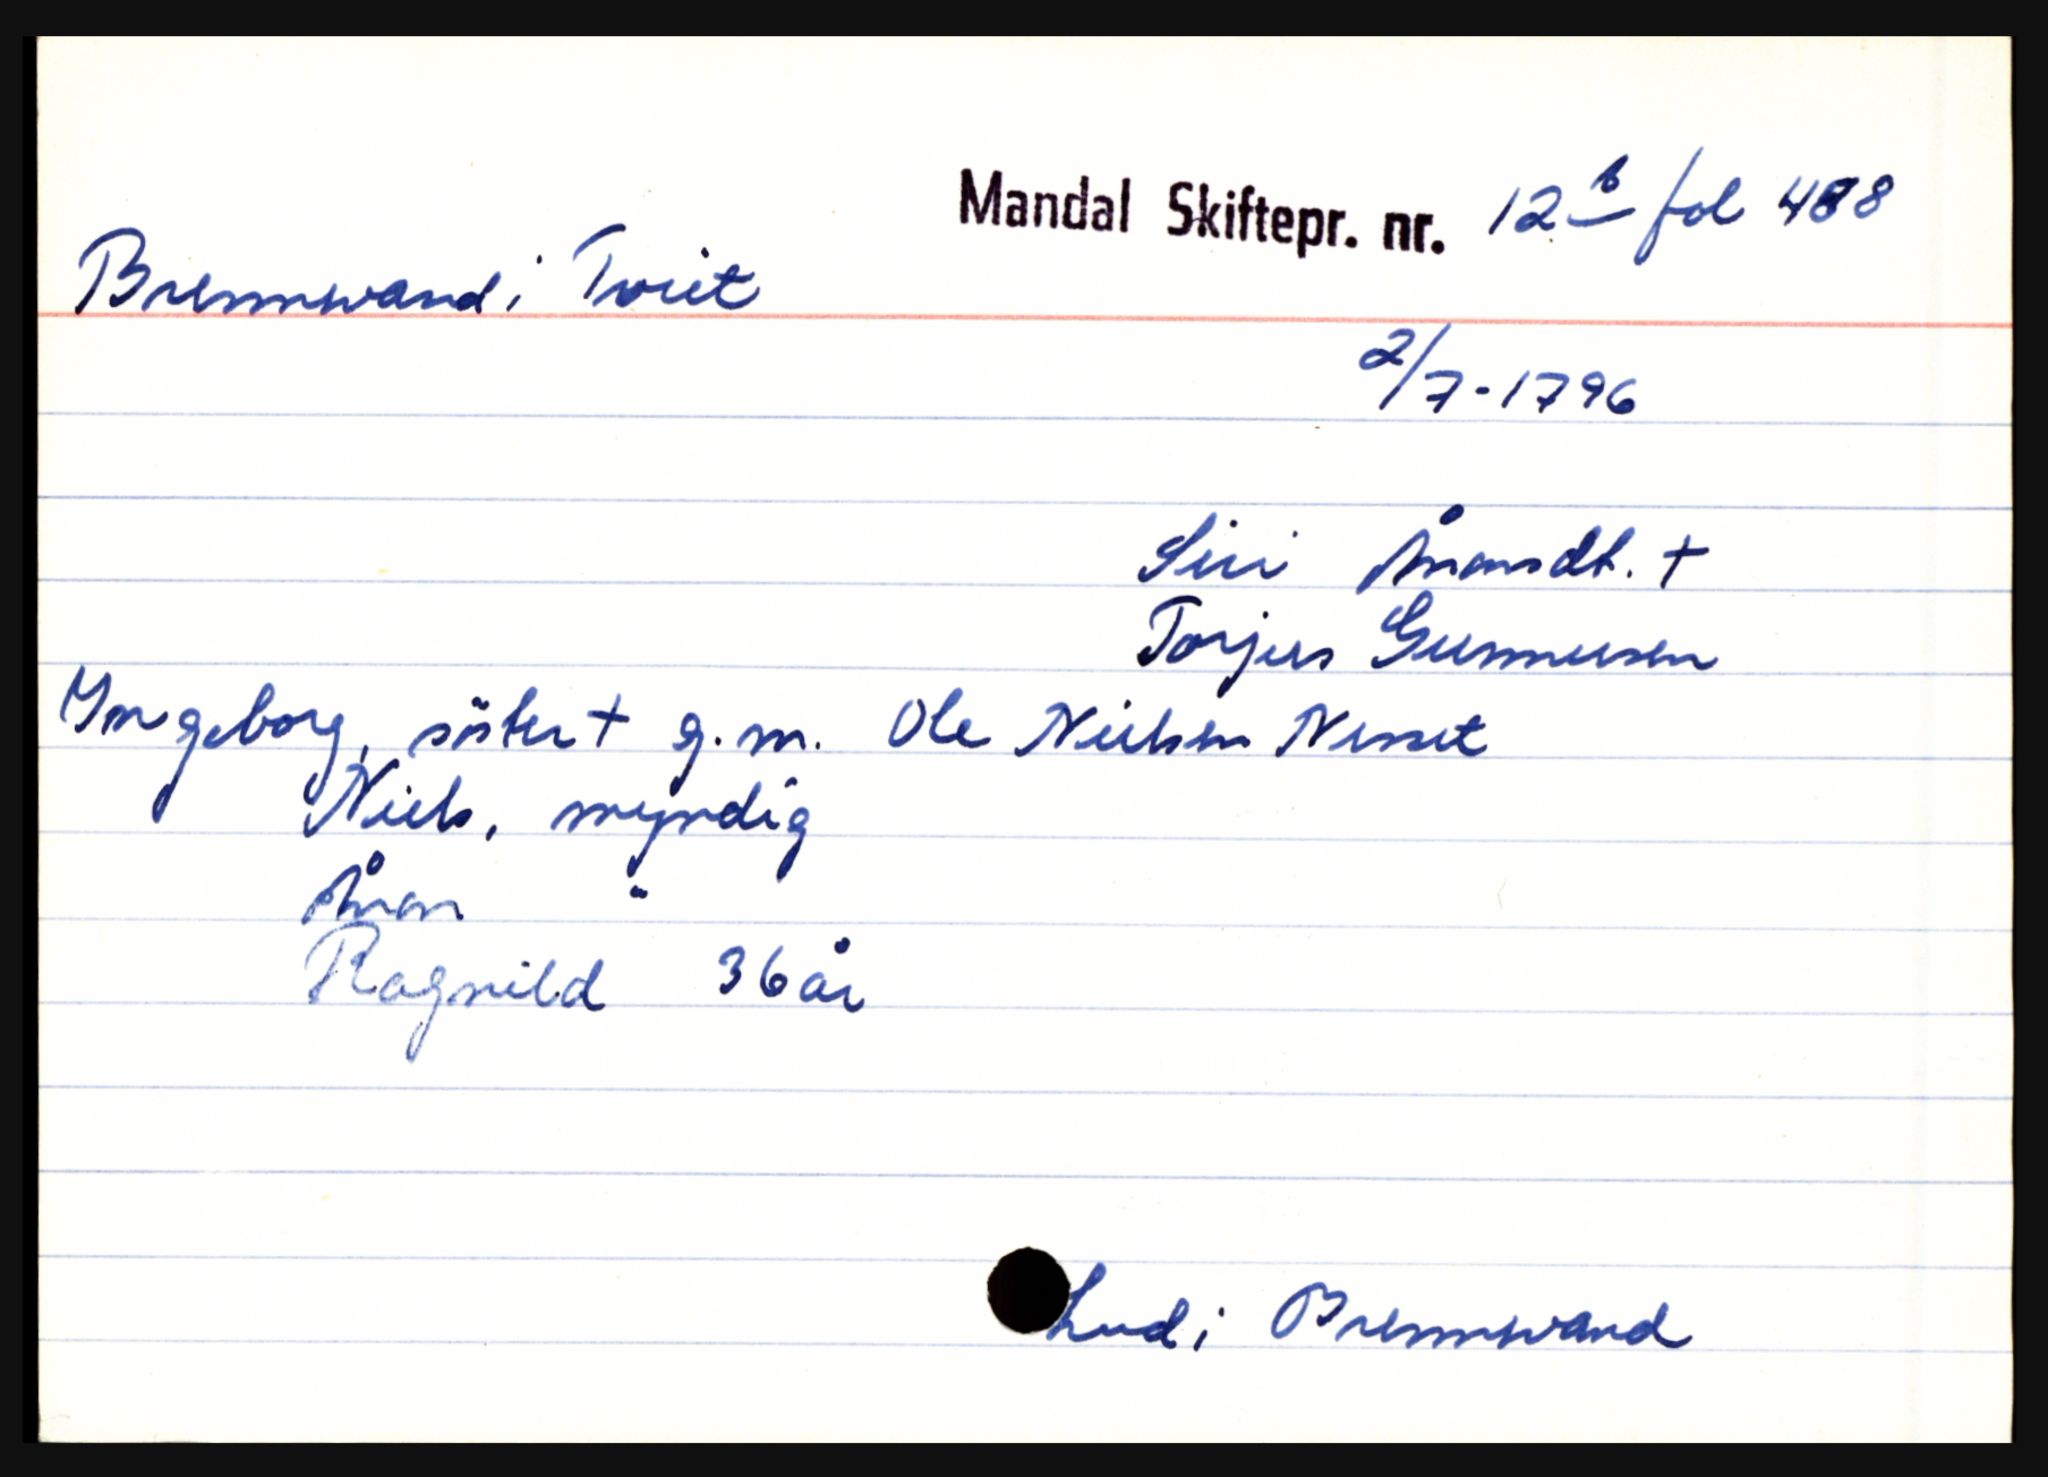 Mandal Skiftepr. nr. 12 b fol 488
Brennwand i Tveit
2/7-1796
Siri Ånonsdt. +
Torjus Gunnusen
Yngeborg, söster + g.m. Ole Nielsen Nesset
Niels, myndig
Ånon "
Ragnild 36 år
Lud i Brennwand